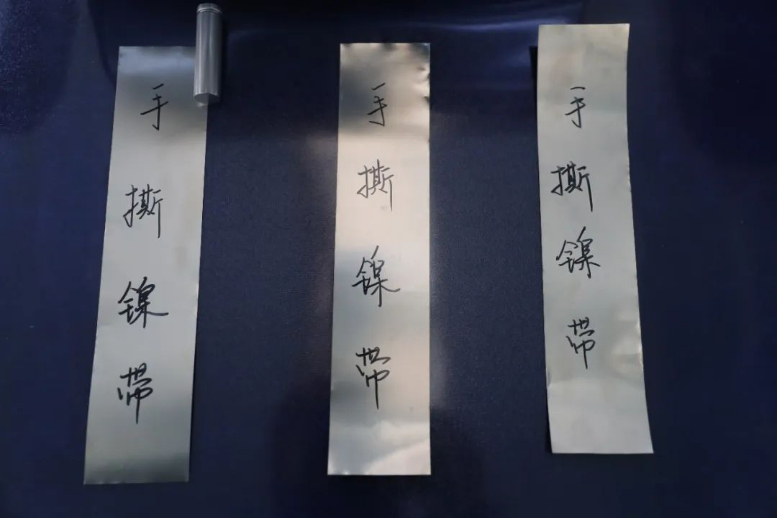 手撕镍带
手撕镍带
手撕镍带